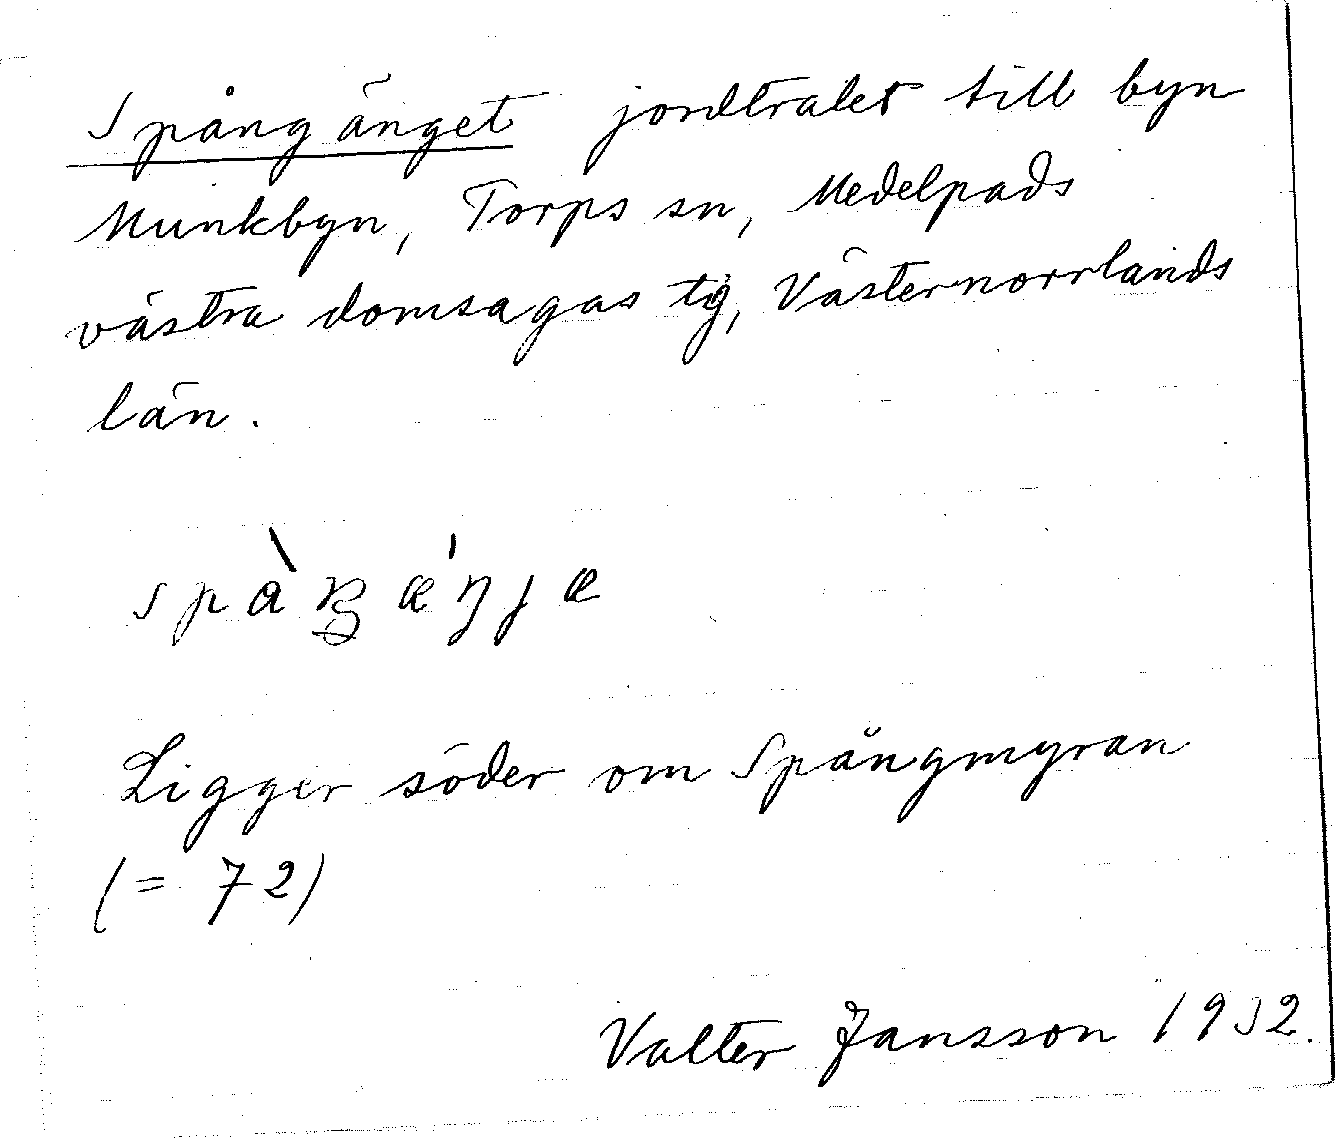 Spångänget jordtralet till byn
Munkbyn, Torps sn, Medelpads
västra domsagas tg, Västernorrlands
län.
Ligger söder om Spångmyran
(= 72)
Valter Jansson 1932.